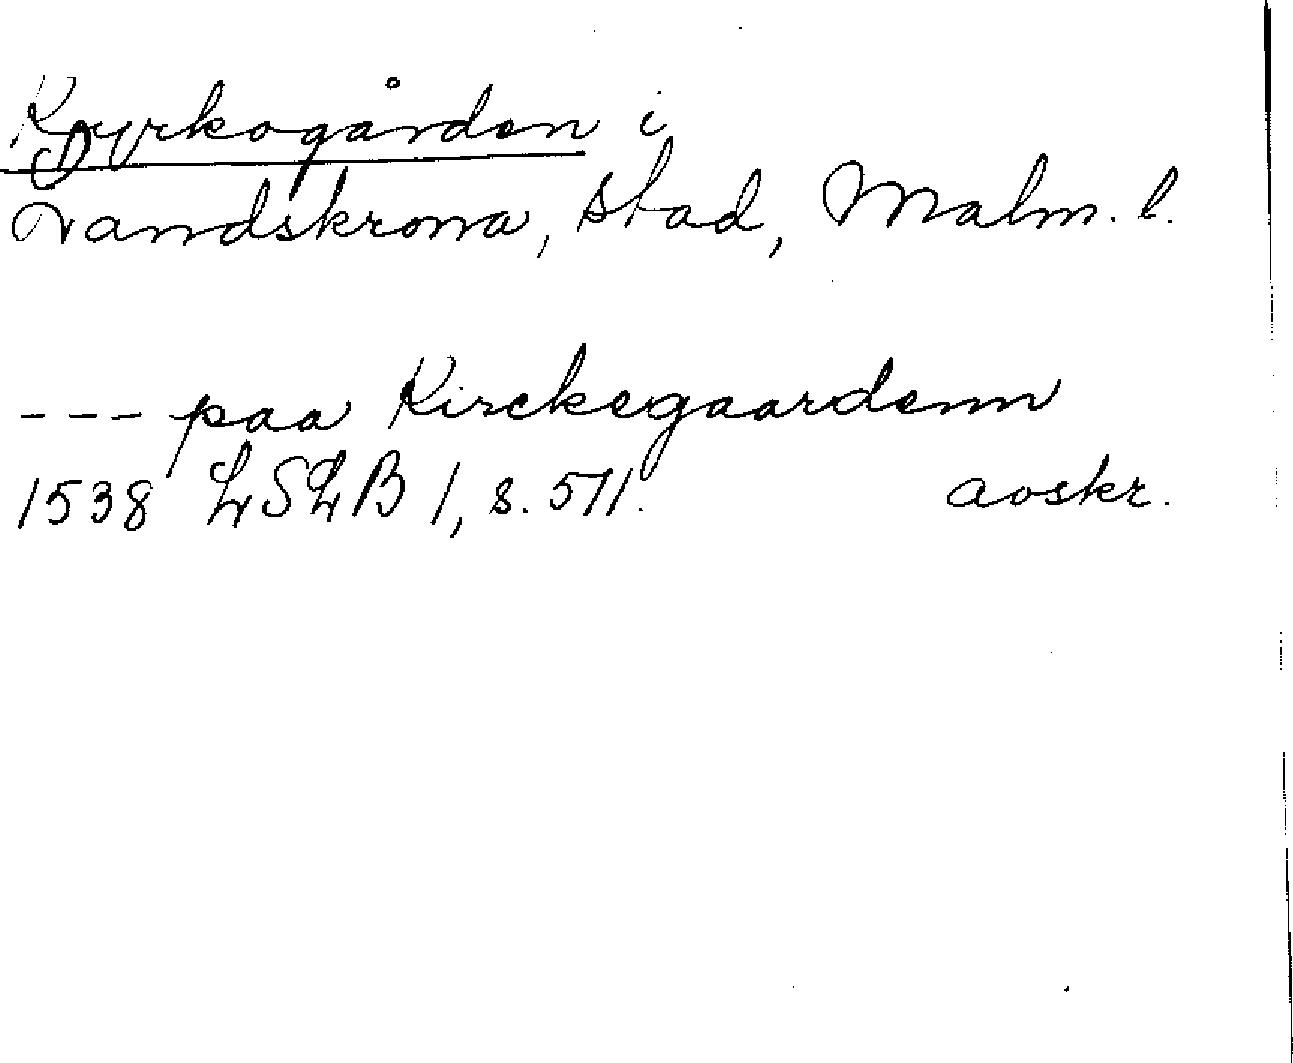 Kyrkogården i
Landskrona, stad, Malm. l.
--- paa Kirckegaardenn
1538 LSLB 1, s. 571. avskr.